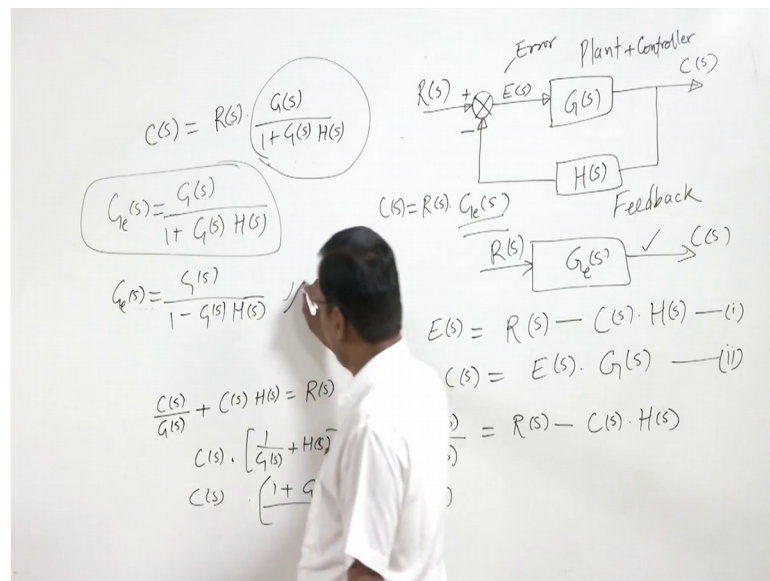 C(s) = R(s). G(s) / 1 + G(s) H(s)
Ge(s) = G(s) / 1 + G(s) H(s)
Ge(s) = G(s) / 1 - G(s) H(s)
C(s)/G(s) + C(s) H(s) = R(s)
C(s) . [1/G(s) + H(s)]
C(s) . (1 + G
Error
Plant + Controller
R(s) + E(s) G(s) C(s)
-
H(s)
Feedback
C(s) = R(s). Ge(s)
R(s) Ge(s) ✓ C(s)
E(s) = R(s) - C(s). H(s) — (i)
C(s) = E(s). G(s) — (ii)
= R(s) - C(s). H(s)